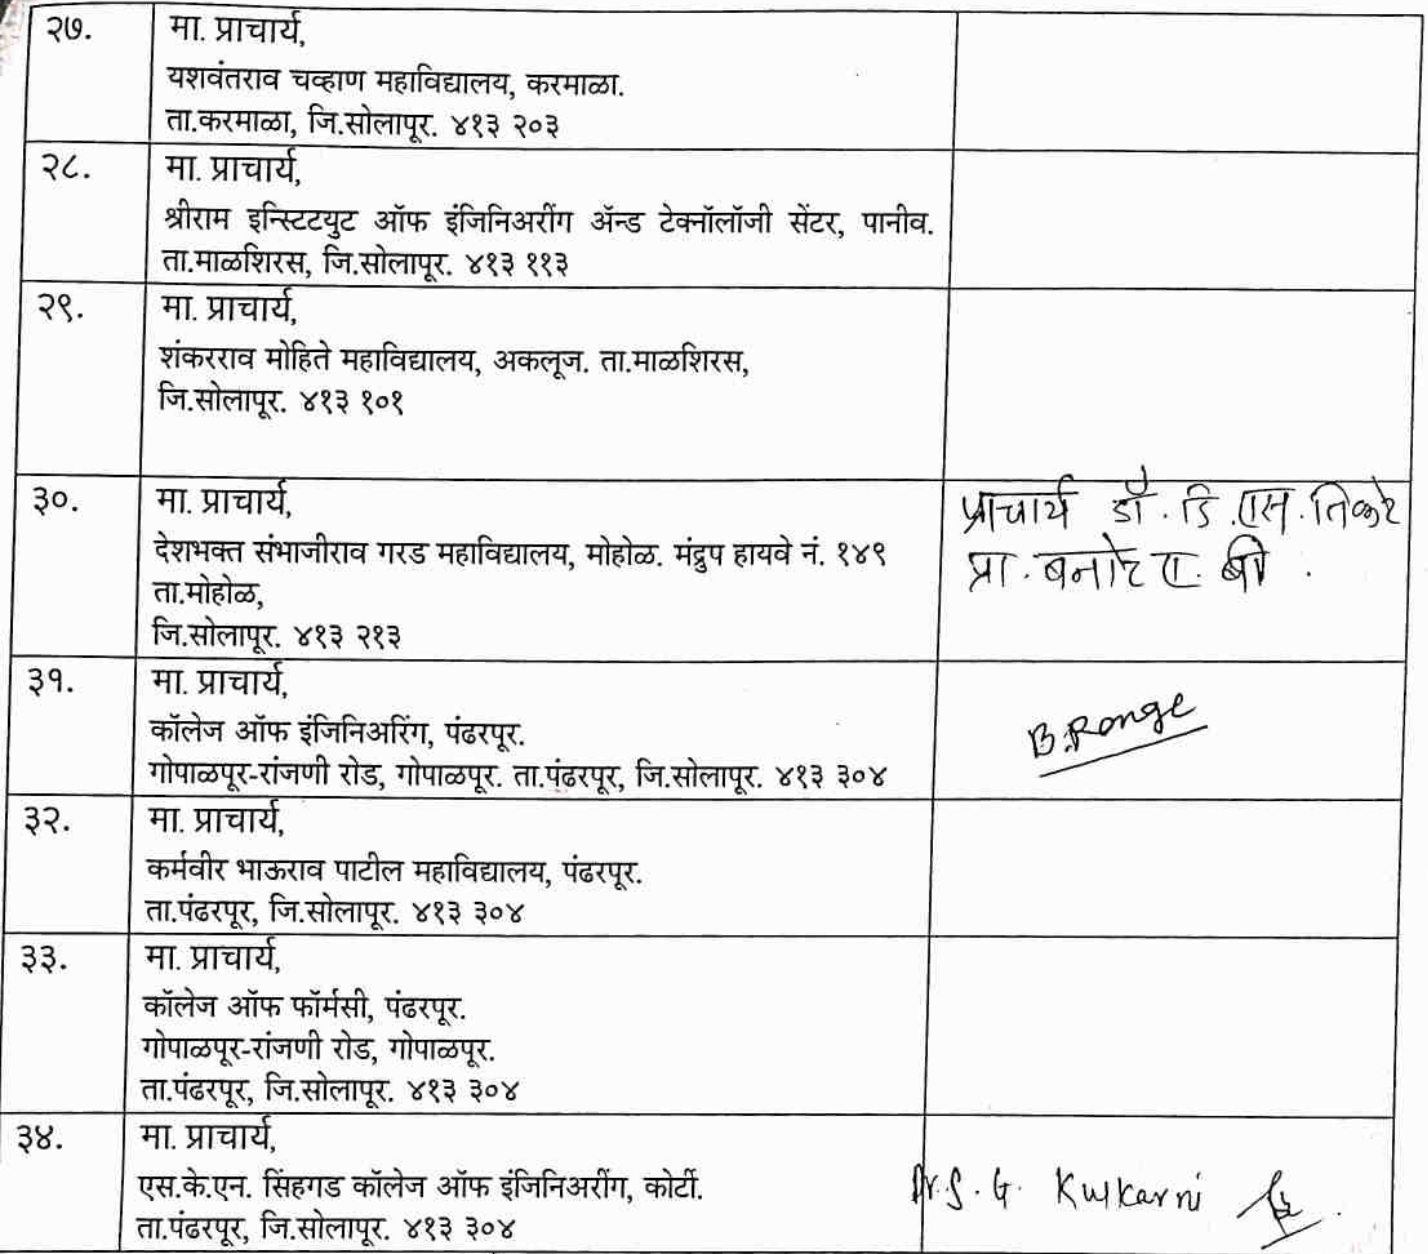 २७.
मा. प्राचार्य,
यशवंतराव चव्हाण महाविद्यालय, करमाळा.
ता.करमाळा, जि.सोलापूर. ४१३ २०३
२८.
मा. प्राचार्य,
श्रीराम इन्स्टिटयुट ऑफ इंजिनिअरींग ॲन्ड टेक्नॉलॉजी सेंटर, पानीव.
ता.माळशिरस, जि.सोलापूर. ४१३ ११३
२९.
मा. प्राचार्य,
शंकरराव मोहिते महाविद्यालय, अकलूज. ता.माळशिरस,
जि.सोलापूर. ४१३ १०१
३०.
मा. प्राचार्य,
देशभक्त संभाजीराव गरड महाविद्यालय, मोहोळ. मंद्रुप हायवे नं. १४९
ता.मोहोळ,
जि.सोलापूर. ४१३ २१३
प्राचार्य डॉ. डि. एस.
प्रा. ए. बी.
३१.
मा. प्राचार्य,
कॉलेज ऑफ इंजिनिअरिंग, पंढरपूर.
गोपाळपूर-रांजणी रोड, गोपाळपूर. ता.पंढरपूर, जि.सोलापूर. ४१३ ३०४
B.Ronge
३२.
मा. प्राचार्य,
कर्मवीर भाऊराव पाटील महाविद्यालय, पंढरपूर.
ता.पंढरपूर, जि.सोलापूर. ४१३ ३०४
३३.
मा. प्राचार्य,
कॉलेज ऑफ फॉर्मसी, पंढरपूर.
गोपाळपूर-रांजणी रोड, गोपाळपूर.
ता.पंढरपूर, जि.सोलापूर. ४१३ ३०४
३४.
मा. प्राचार्य,
एस.के.एन. सिंहगड कॉलेज ऑफ इंजिनिअरींग, कोर्टी.
ता.पंढरपूर, जि.सोलापूर. ४१३ ३०४
Dr. S. G. Kulkarni